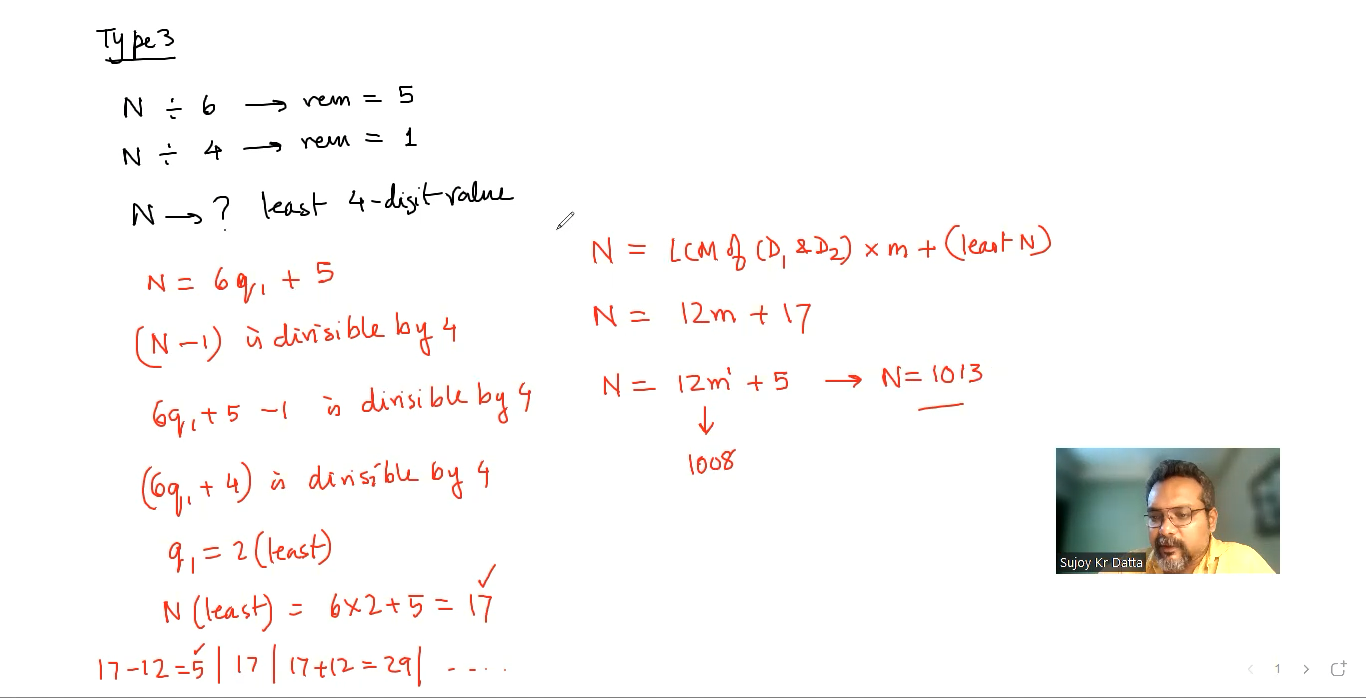 Type 3
N ÷ 6 → rem = 5
N ÷ 4 → rem = 1
N → ? least 4-digit value
N = 6q₁ + 5
(N - 1) is divisible by 4
6q₁ + 5 - 1 is divisible by 4
(6q₁ + 4) is divisible by 4
q₁ = 2 (least)
N (least) = 6×2+5 = 17 ✓
17-12=5 ✓ | 17 | 17+12=29 | -----
N = LCM of (D₁ & D₂) × m + (least N)
N = 12m + 17
N = 12m' + 5 → N=1013
↓
1008
Sujoy Kr Datta
1